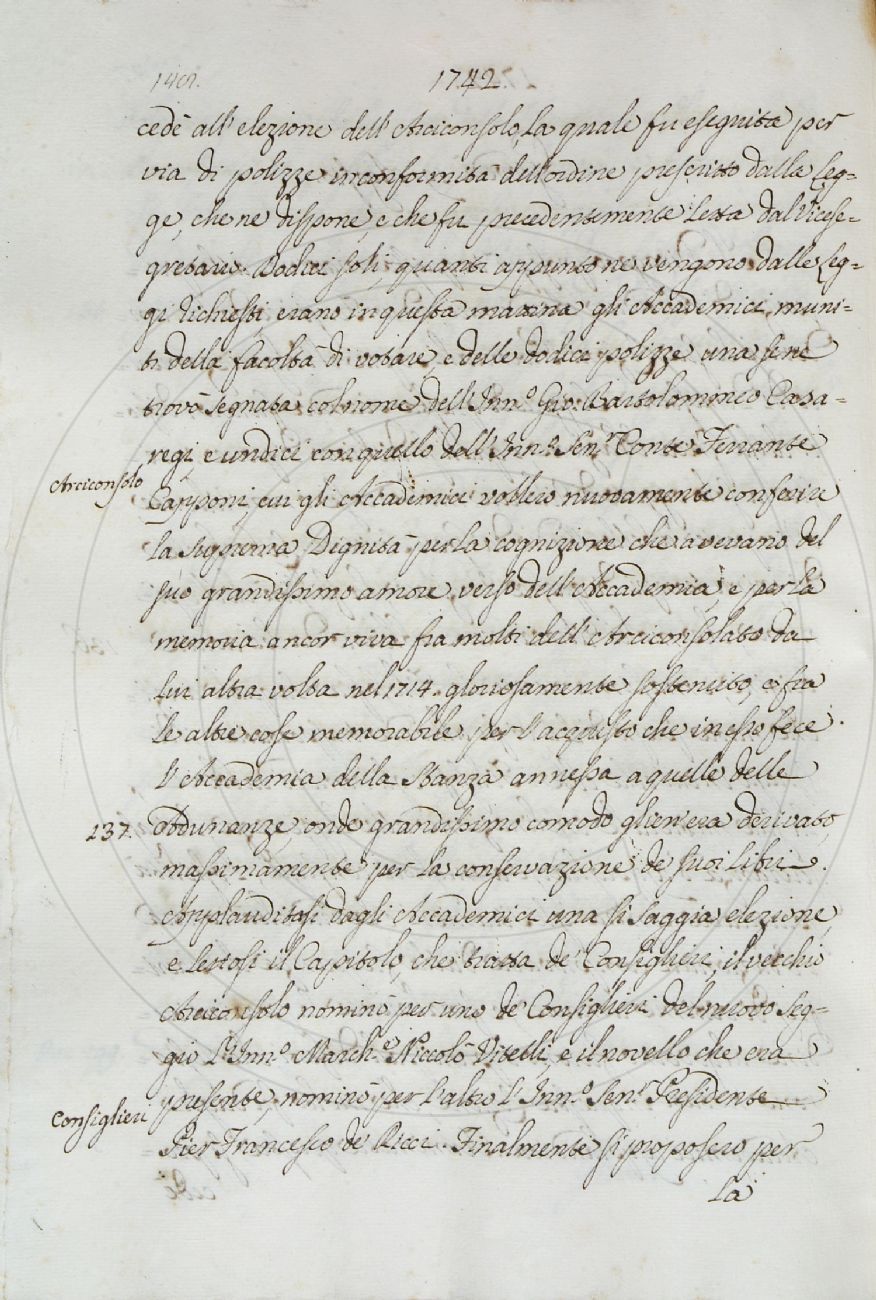 1742.
cedè all'elezione dell'Arciconsolo, la quale fu eseguita per
via di polizze inconformità dell'ordine prescritto dalla Leg=
ge, che ne dispone, e che fu precedentemente letta dal Vicese=
gretario. Dodici soli, quanti appunto ne vengono dalle Leg=
gi richiesti, erano in questa mattina gli Accademici muni=
ti della facoltà di votare, e delle dodici polizze una se ne
trovò segnata col nome dell'Inn.º Gio: Bartolommeo Casa=
regi, e undici con quello dell'Inn.º Sen.r Conte Ferrante
Arciconsolo
Capponi, cui gli Accademici vollero nuovamente conferire
la suprema Dignità per la cognizione che avevano del
suo grandissimo amore verso dell'Accademia, e per la
memoria ancor viva fra molti dell'Arciconsolato da
lui altra volta nel 1714. gloriosamente sostenuto, e fra
le altre cose memorabile per l'acquisto che in esso fece
l'Accademia della Stanza annessa a quelle delle
137. Adunanze, onde grandissimo comodo glien'era derivato,
massimamente per la conservazione de' suoi Libri.
Applauditasi dagli Accademici una sì saggia elezione,
e lettosi il Capitolo, che tratta de' Consiglieri, il vecchio
Arciconsolo nominò per uno de' Consiglieri del nuovo Seg=
gio l'Inn.º March.e Niccolò Vitelli, e il novello che era
presente, nominò per l'altro l'Inn.º Sen.r Presidente
Consiglieri
Pier Francesco de' Ricci. Finalmente si proposero per
la